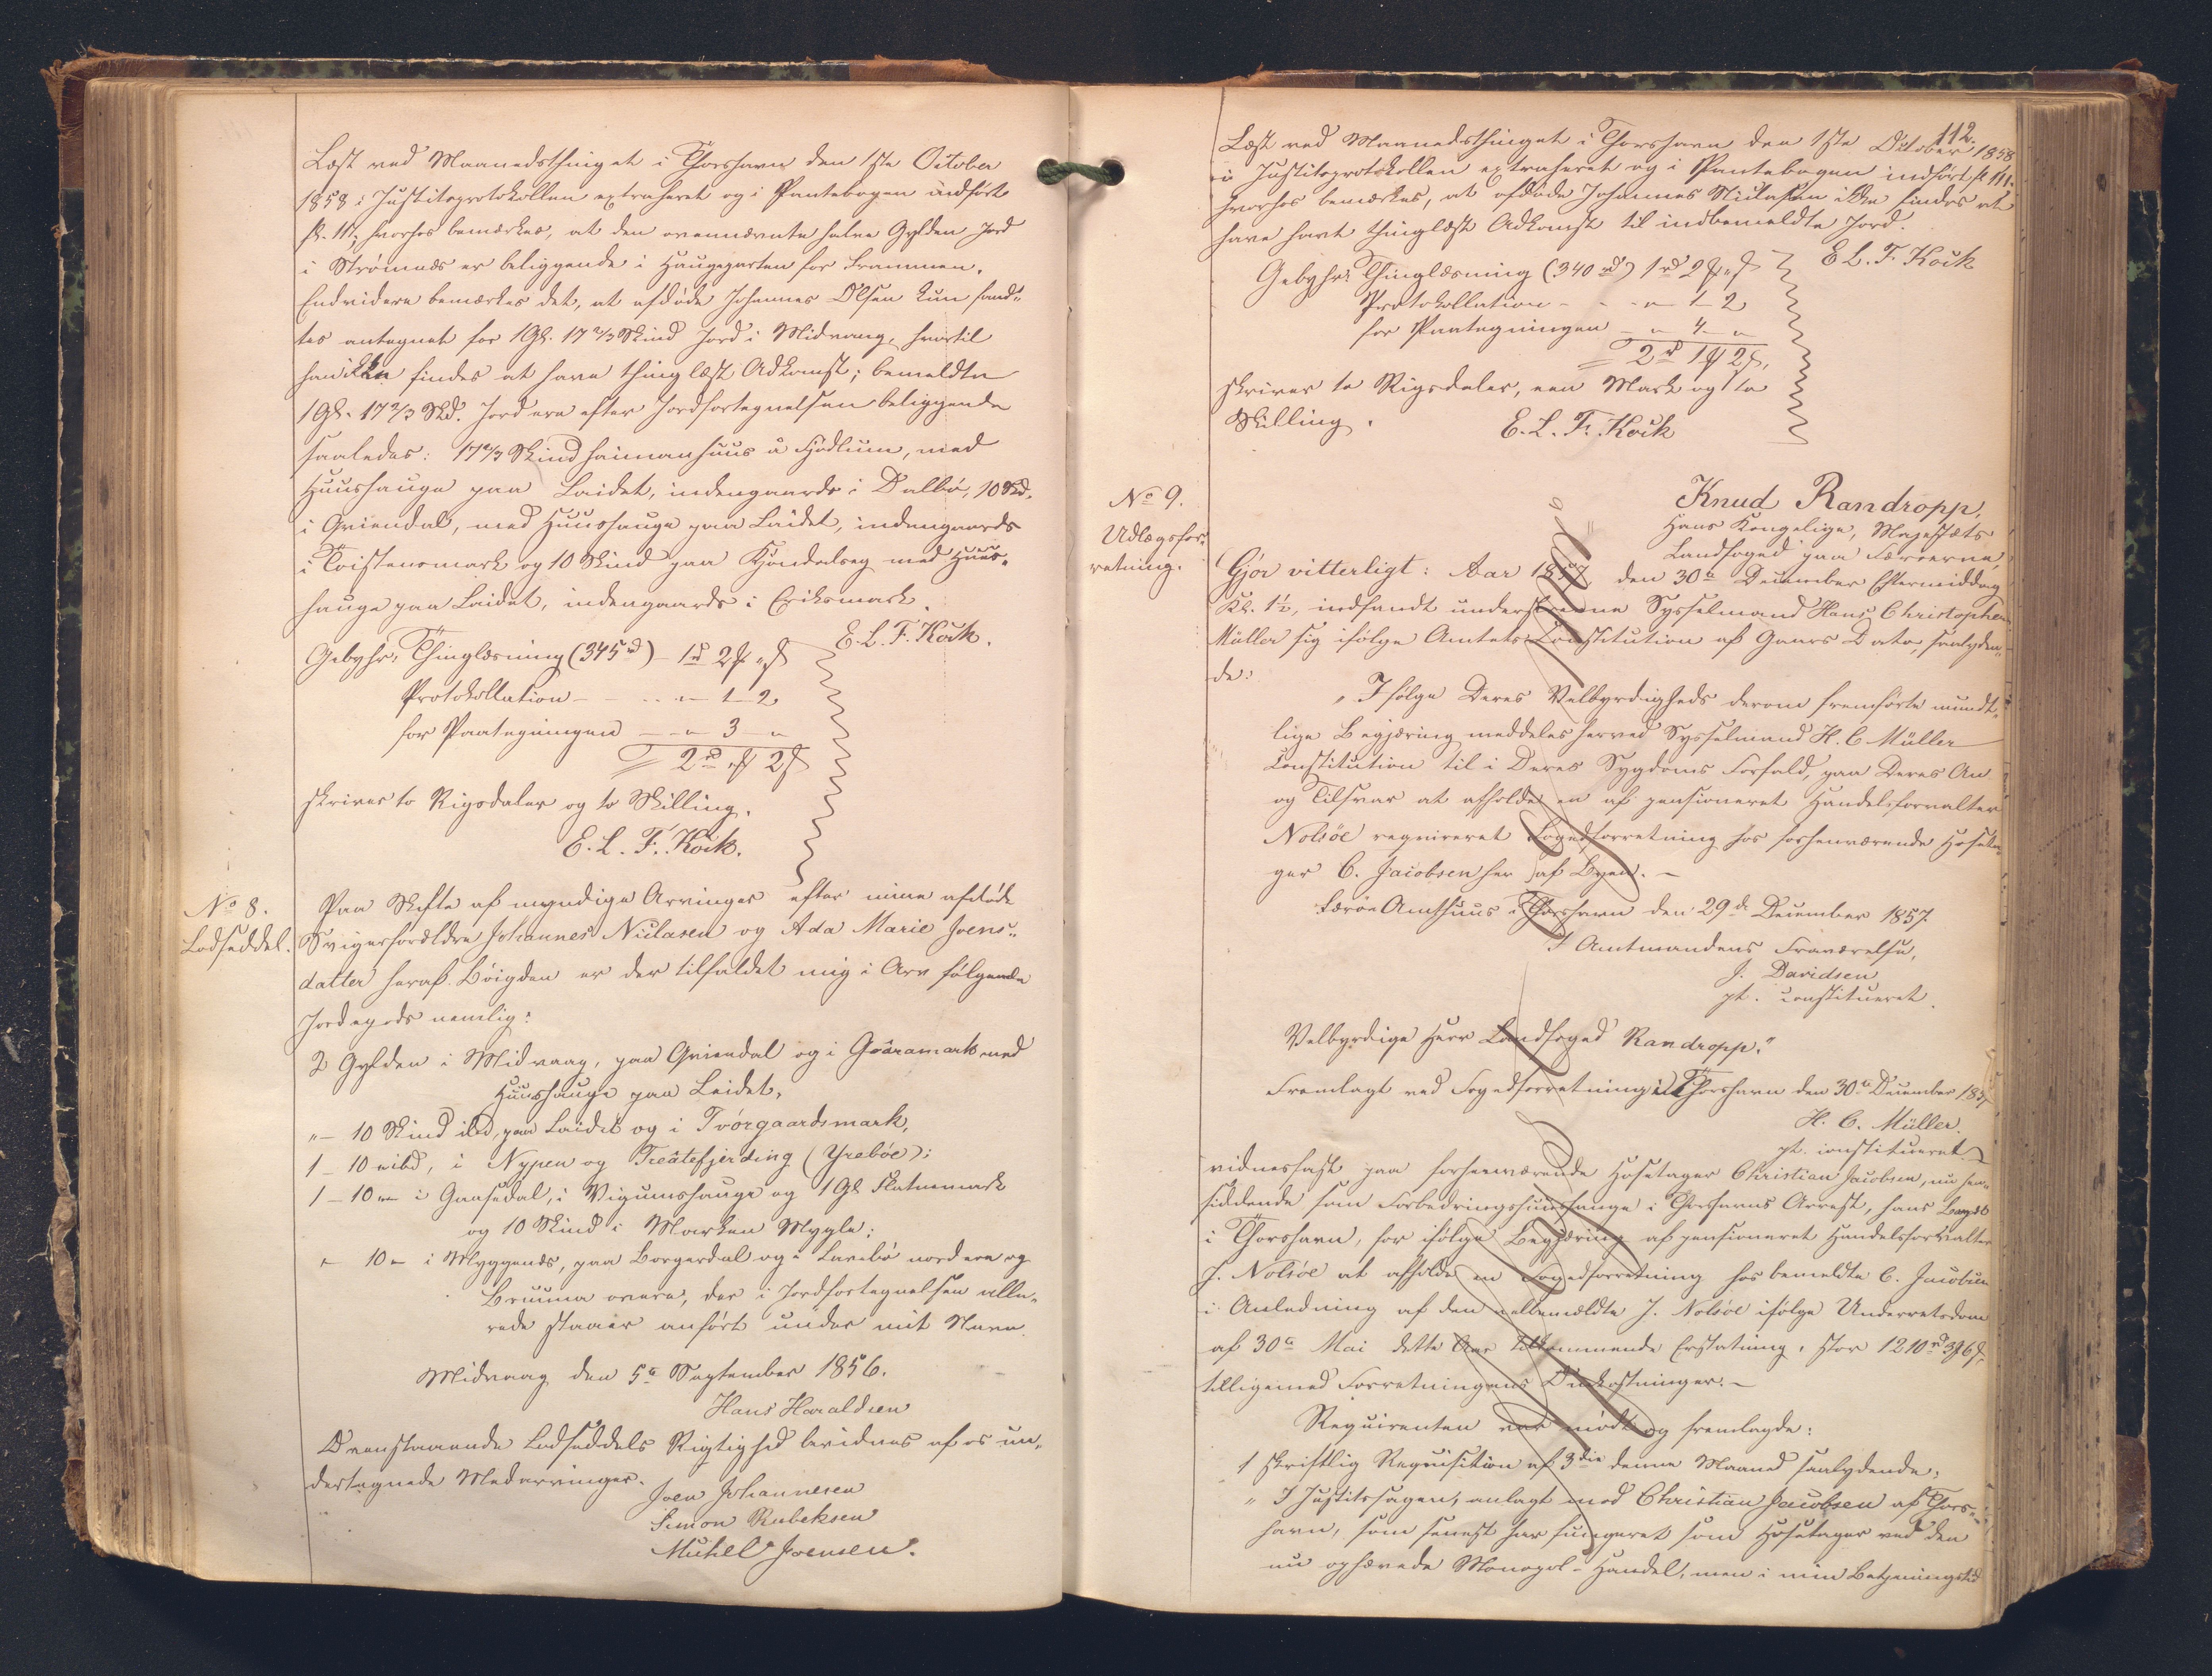 Læst ved Maanedsthinget i Thorshavn den 1ste October
1858 i Justitsprotokollen extraheret og i Pantebogen indført
fl. 111, hvorhos bemærkes, at den ovennævnte halve Gylden Jord
i Strømnæs er beliggende i Haugegarten for Frammen.
Endvidere bemærkes det, at afdøde Johannes Olsen kun fand-
tes antegnet for 1 Gl. 17 2/3 Skind Jord i Midvaag, hvortil
han ikke findes at have thinglæst Adkomst; bemeldte
1 Gl. 17 2/3 Skd. Jord ere efter Jordfortegnelsen beliggende
saaledes: 17 2/3 Skind heimanhuus á Fjødlum, med
Huushauge paa Leidet, indengaards i Dalbø, 10 Skd.
i Griendal, med Huushauge paa Leidet, indengaards
i Toistensmark og 10 Skind paa med Huus-
hauge paa Leidet, indengaards i Eriksmark.
E. L. F. Kock.
Gebyhr: Thinglæsning (345 rd) – 1 rd 2 ℳ „ ß
Protokollation – – „ – 1 – 2
for Paategningen – „ – 3 – „
= 2 rd „ ℳ 2 ß
skriver to Rigsdaler og to Skilling.
E. L. F. Kock.
No 8.
Lodseddel.
Paa Skifte af myndige Arvinger efter mine afdøde
Svigerforældre Johannes Niclasen og Ada Marie Joens-
datter heraf Bøigden er der tilfaldet mig i Arv følgende
Jordegods nemlig:
2 Gylden i Midvaag, paa Griendal og i Goâramark med
Huushauge paa Leidet,
„ – 10 Skind ibd, paa Leidet og i Tvørgaardsmark,
1 – 10 „ ibd, i Nypen og Treâtefjerding (Yrebøe);
1 – 10 „ – i Gaasedal, i Vigumshauge og 1 Gl. Flatnemark
og 10 Skind i Marken Mygle;
„ 10 „ i Myggenæs, paa Borgardal og i Lambø nordere og
Bruuna overe, der i Jordfortegnelsen alle-
rede staaer anført under mit Navn.
Midvaag den 5te September 1856.
Hans Haraldsen
Ovenstaaende Lodseddels Rigtighed bevidnes af os un-
dertegnede Medarvinger.
Joen Johannesen
Simon Rubeksen
Michel Joensen.
112.
Læst ved Maanedsthinget i Thorshavn den 1ste October 1858
i Justitsprotokollen extraheret og i Pantebogen indført fl 111,
hvorhos bemærkes, at afdøde Johannes Niclasen ikke findes at
have havt thinglæst Adkomst til indbemeldte Jord.
E L. F. Kock
Gebyhr: Thinglæsning (340 rd) 1 rd 2 ℳ „ ß
Protokollation – – „ – 1 – 2
for Paategningen – „ – 4 – „
= 2 rd 1 ℳ 2 ß,
skriver to Rigsdaler, een Mark og to
Skilling.
E. L. F. Kock
No 9.
Udlægsfor-
retning.
Knud Randropp,
Hans Kongelige Majestæts
Landfoged paa Færøerne,
Gjør vitterligt: Aar 1857 den 30te December Eftermiddag
Kl. 1½, indfandt underskrevne Sysselmand Hans Christopher
Müller sig ifølge Amtets Constitution af Gaars Dato, saalyden-
de:
„Ifølge Deres Velbyrdigheds derom fremførte mundt-
lige Begjæring meddeles herved Sysselmand H. C Müller
Constitution til i Deres Sygdoms Forfald, paa Deres An
og Tilsvar at afholde en af pensioneret Handelsforvalter
Nolsöe reqvireret Fogedforretning hos forhenværende Hoseta-
ger C. Jacobsen her af Byen. –
Færøe Amthuus i Thorshavn den 29de December 1857.
I Amtmandens Fraværelse,
J. Davidsen
pt. constitueret.
Velbyrdige Herr Landfoged Randropp."
Fremlagt ved Fogedforretning i Thorshavn den 30te December 1857
H. C. Müller.
pt. constitueret.
vidnesfast paa forhenværende Hosetager Christian Jacobsen, nu hen-
siddende som Forbedringshuusfange i Thorshavns Arrest, hans Bopæl
i Thorshavn, for ifølge Begjæring af pensioneret Handelsforvalter
J. Nolsöe at afholde en Fogedforretning hos bemeldte C. Jacobsen
i Anledning af den velbemeldte J. Nolsöe ifølge Underretsdom
af 30te Mai dette Aar tilkommende Erstatning, stor 1210 rd 3 ℳ 6 ß,
tilligemed Forretningens Omkostninger. –
Reqvirenten var mødt og fremlagde:
1 skriftlig Reqvisition af 3die denne Maaned saalydende:
„ I Justitssagen, anlagt mod Christian Jacobsen af Thors-
havn, som senest har fungeret som Hosetager ved den
nu ophævede Monopol-Handel, men i min Betjeningstid